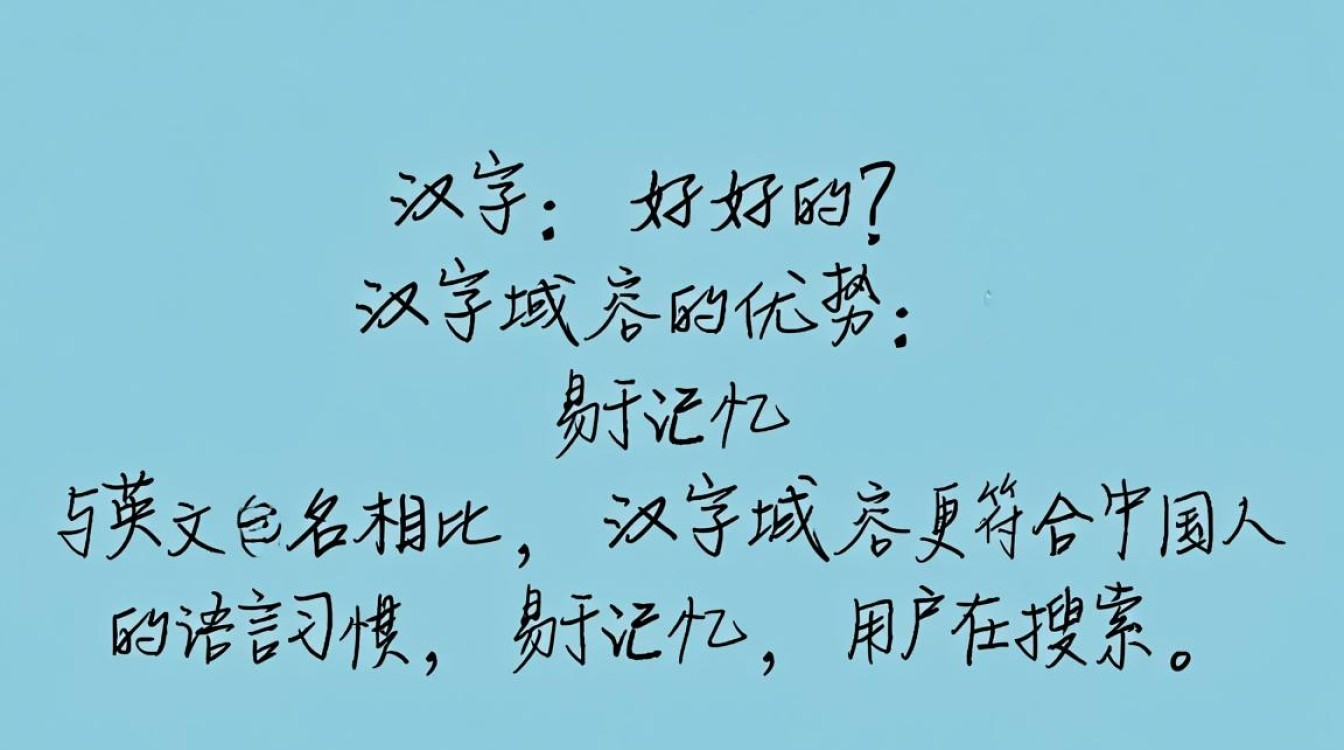 汉字：好好的？
汉字域容的优势：
易于记忆
与英文包名相比，汉字域容更符合中国人
的语言习惯，易于记忆，用户在搜索。